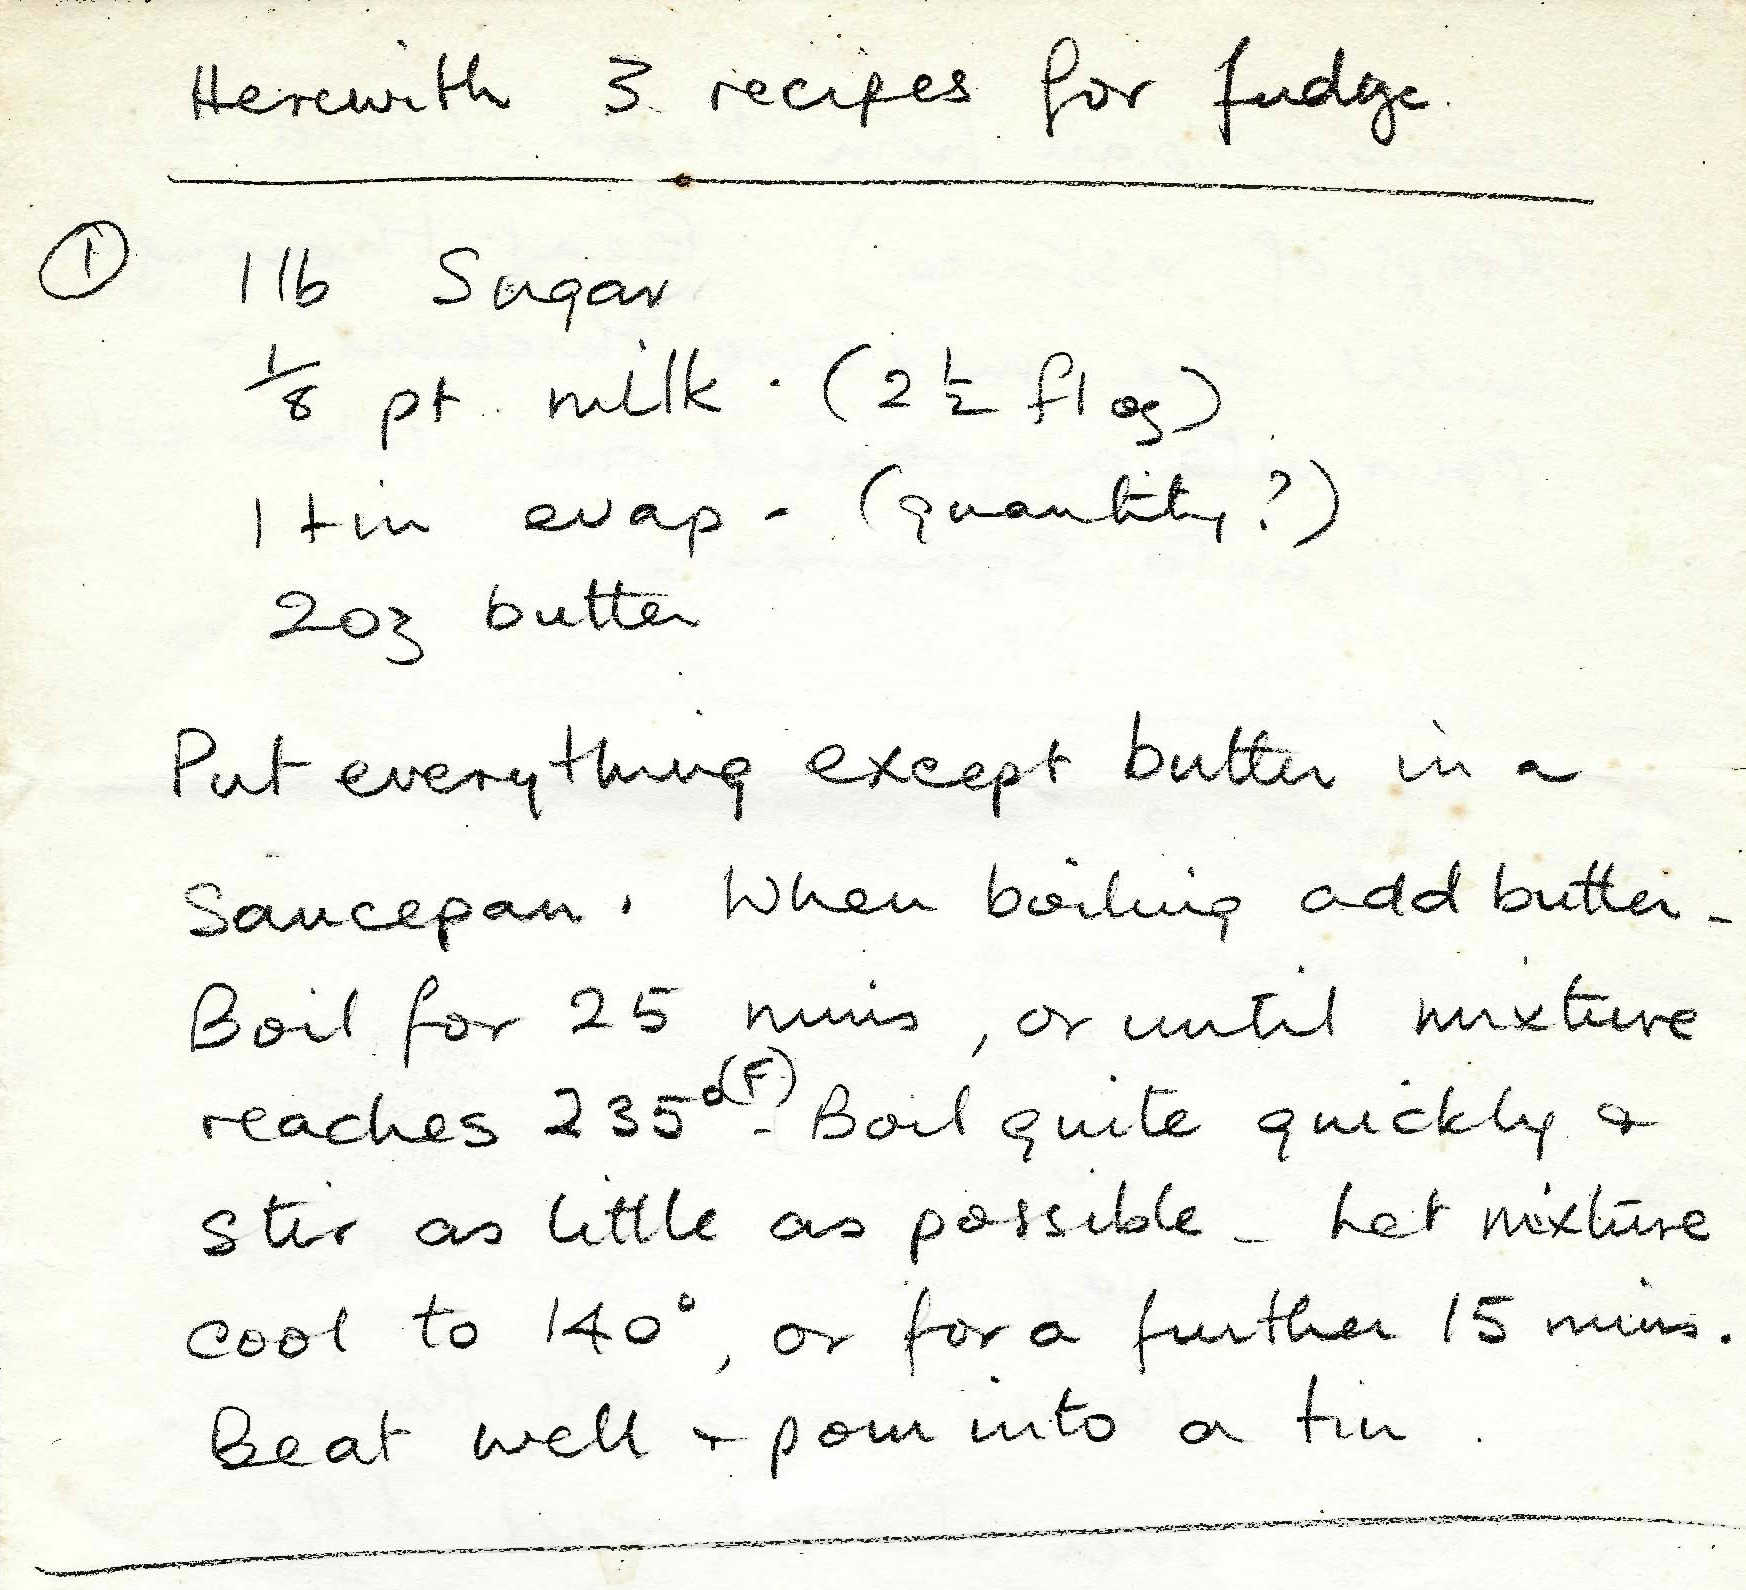 Herewith 3 recipes for fudge.
① 1 lb Sugar
1/8 pt. milk. (2 1/2 fl oz)
1 tin evap. (quantity?)
2 oz butter
Put everything except butter in a
Saucepan. When boiling add butter -
Boil for 25 mins, or until mixture
reaches 235°(F) - Boil quite quickly &
stir as little as possible - Let mixture
cool to 140°, or for a further 15 mins.
Beat well & pour into a tin.